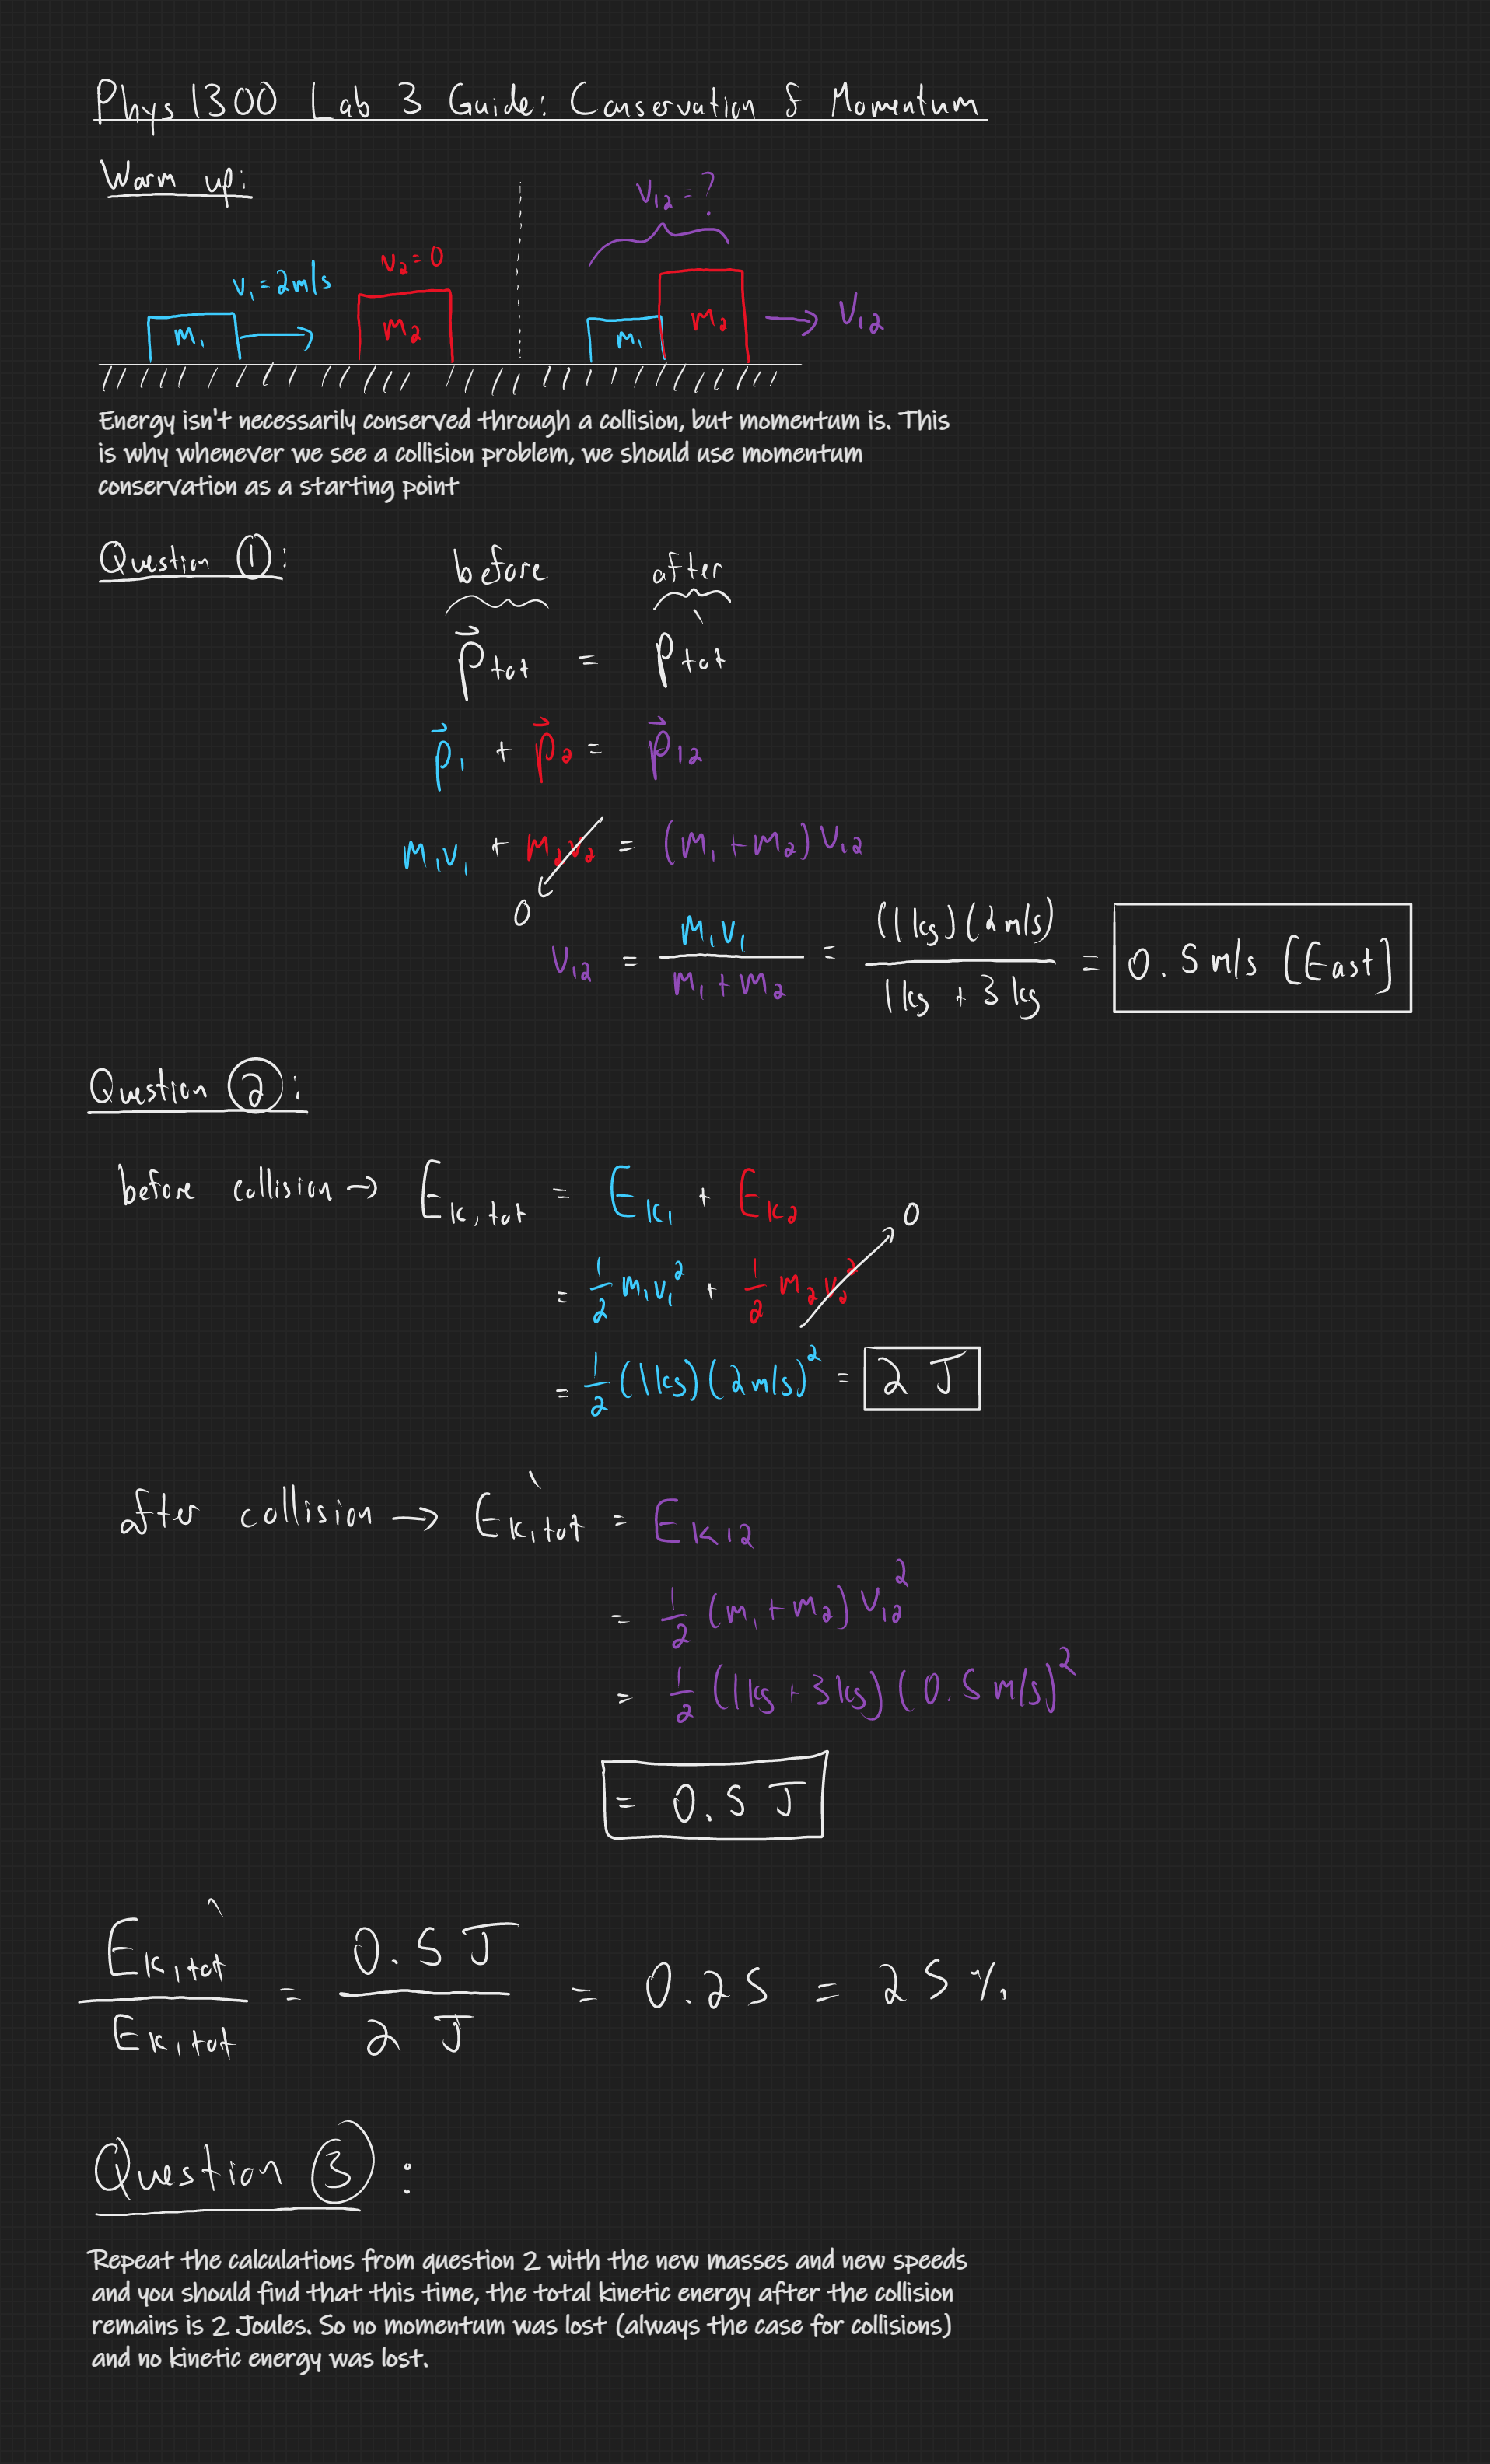 Phys 1300 Lab 3 Guide: Conservation of Momentum
Warm up:
v₁₂ = ?
v₂ = 0
v₁ = 2 m/s
m₁
m₂
m₁
m₂
→ v₁₂
Energy isn't necessarily conserved through a collision, but momentum is. This
is why whenever we see a collision problem, we should use momentum
conservation as a starting point
Question ①:
before after
p⃗tot = p'tot
p⃗₁ + p⃗₂ = p⃗₁₂
m₁v₁ + m₂v₂ = (m₁ + m₂) v₁₂
0
v₁₂ = m₁v₁ / (m₁ + m₂) = (1 kg)(2 m/s) / (1 kg + 3 kg) = 0.5 m/s (East)
Question ②:
before collision → Ek,tot = Ek1 + Ek2
0
= 1/2 m₁v₁² + 1/2 m₂v₂²
= 1/2 (1 kg)(2 m/s)² = 2 J
after collision → Ek,tot' = Ek12
= 1/2 (m₁ + m₂) v₁₂²
= 1/2 (1 kg + 3 kg)(0.5 m/s)²
= 0.5 J
Ek,tot' / Ek,tot = 0.5 J / 2 J = 0.25 = 25 %
Question ③:
Repeat the calculations from question 2 with the new masses and new speeds
and you should find that this time, the total kinetic energy after the collision
remains is 2 Joules. So no momentum was lost (always the case for collisions)
and no kinetic energy was lost.